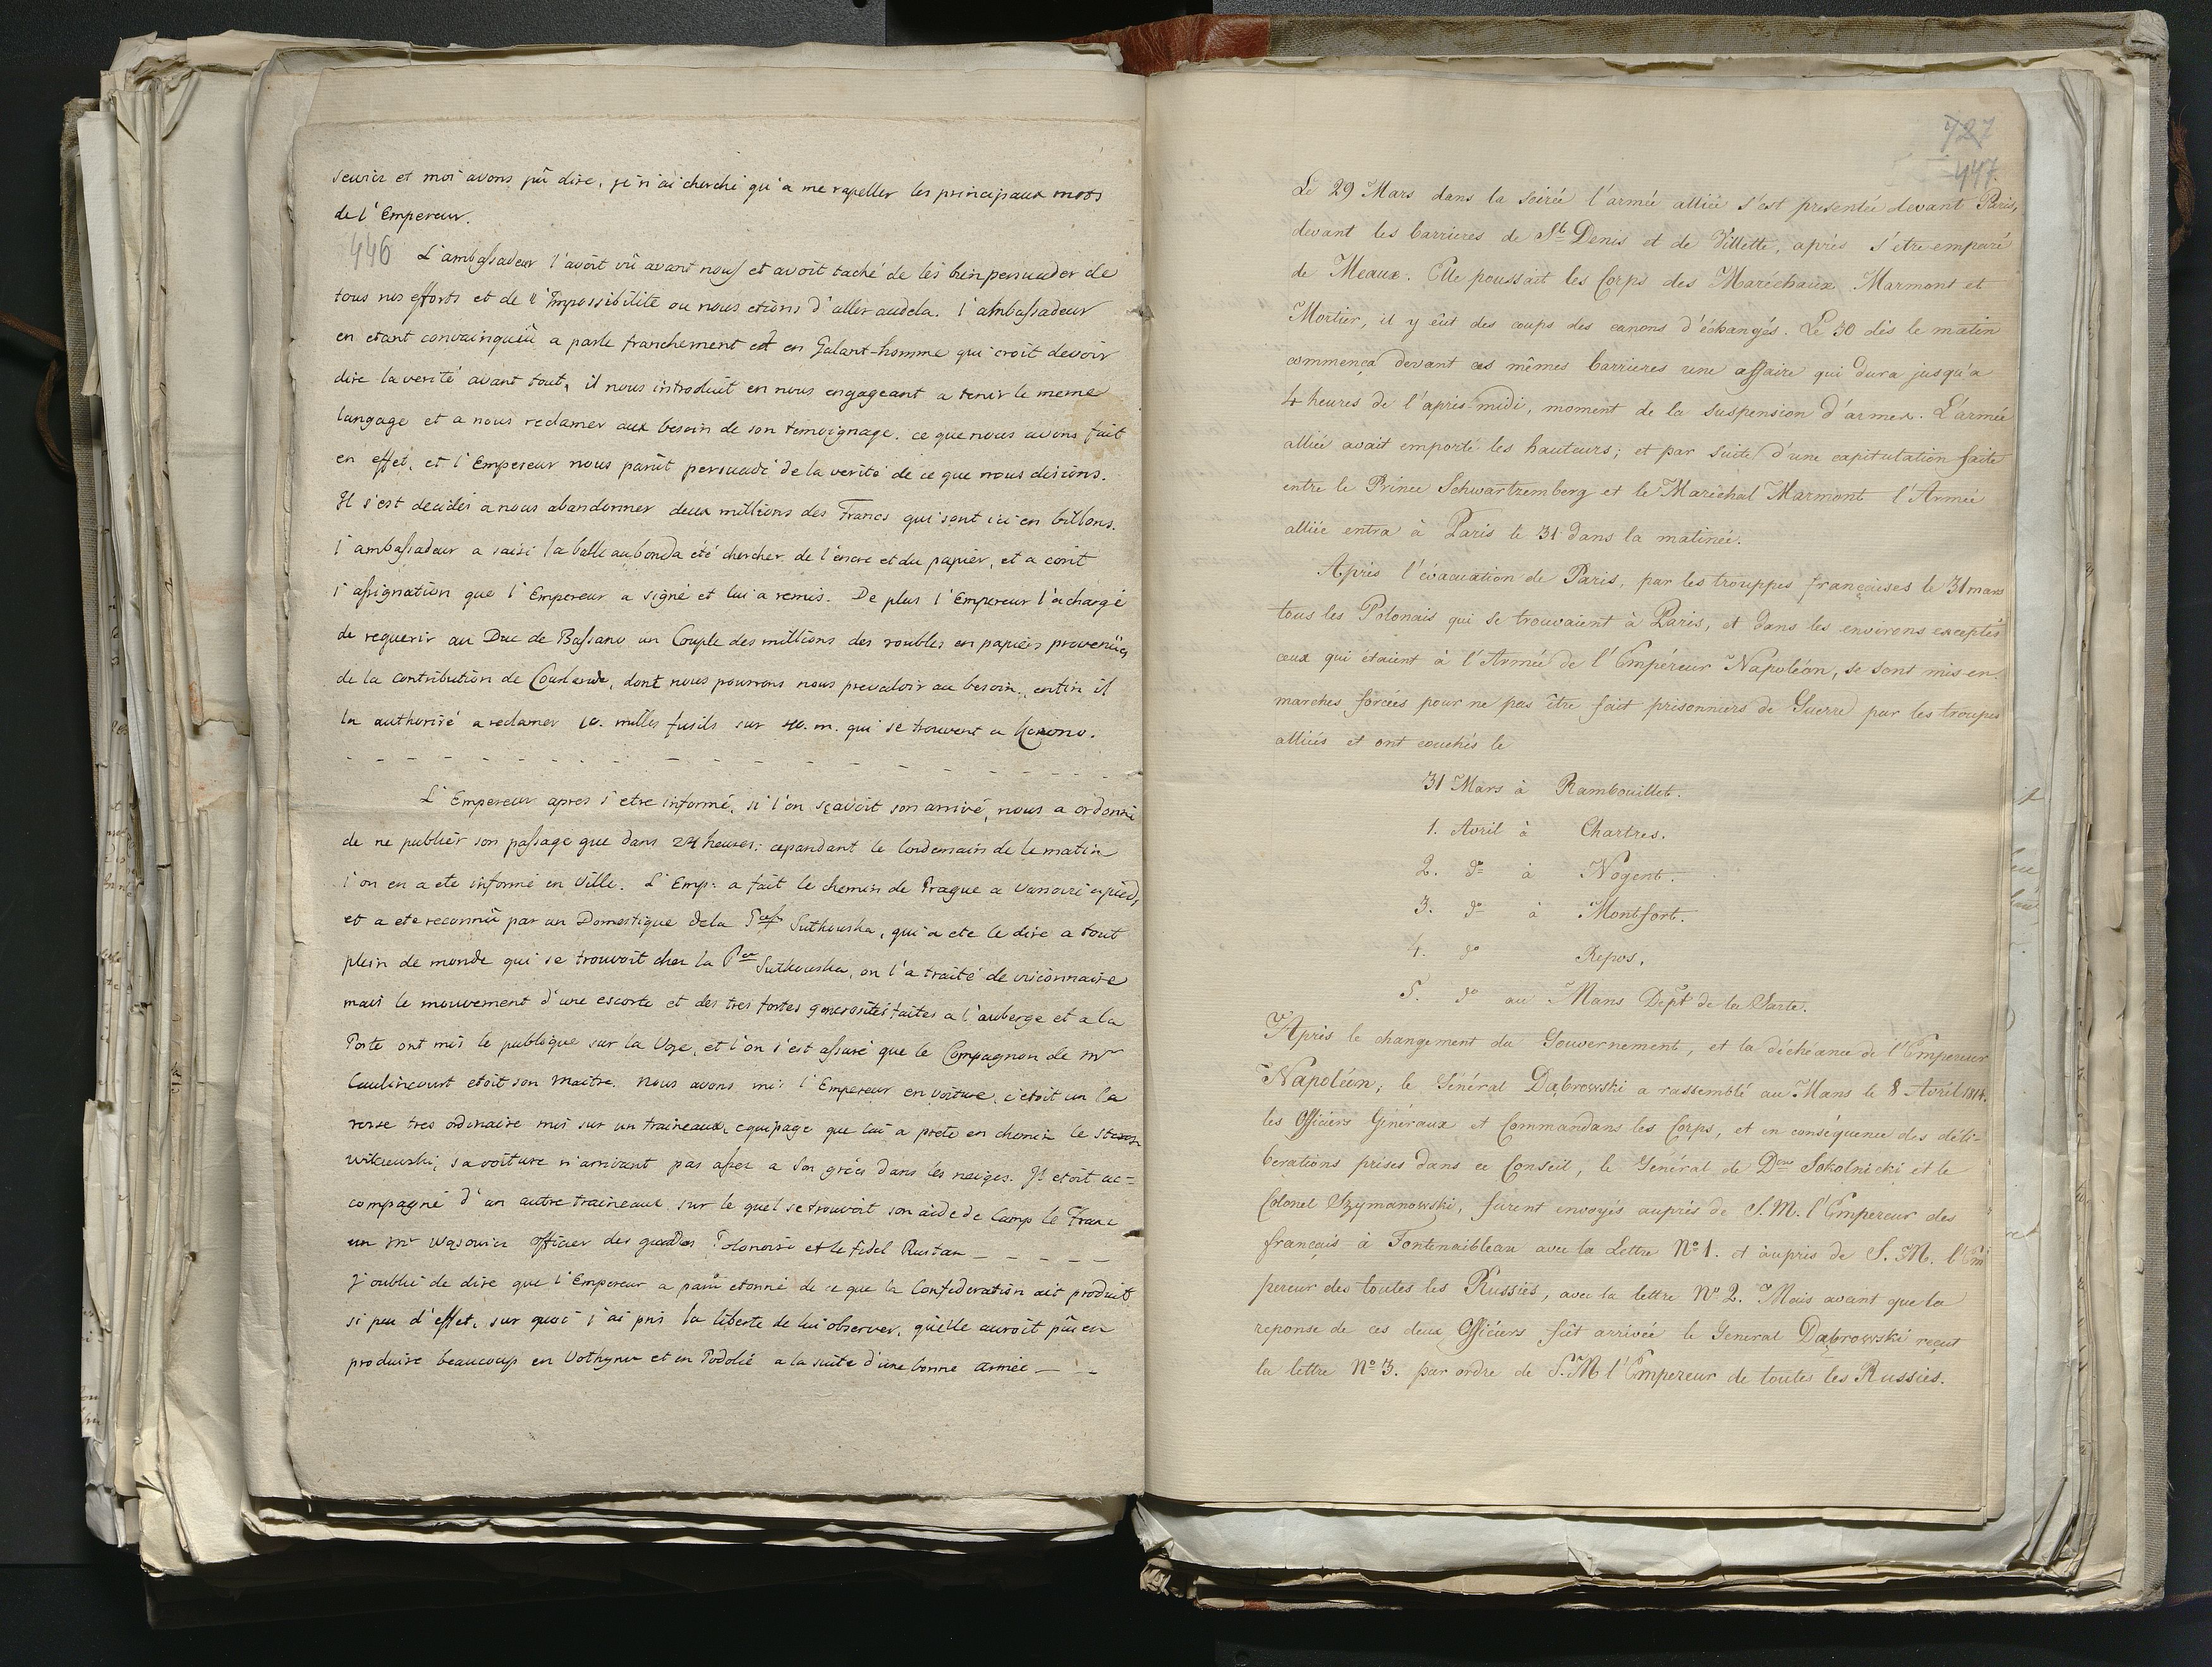 scuvier et moi avons pû dire, je n'ai cherché qu'a me rapeller les principaux mots
de l'Empereur.
446
L'ambassadeur l'avoit vû avant nous et avoit taché de les bien persuader de
tous nos efforts et de l'impossibilité ou nous etions d'aller audela. l'ambassadeur
en etant convainquüe a parle franchement et en Galant-homme qui croit devoir
dire la verité avant tout, il nous introduit en nous engageant a tenir le meme
langage et a nous reclamer aux besoin de son temoignage. ce que nous avons fait
en effet, et l'Empereur nous parût persuadé de la verité de ce que nous disions.
Il s'est decidés a nous abandonner deux millions des Francs qui sont ici en billons.
l'ambassadeur a saisi la balle au bond a été chercher de l'encre et du papier, et a ecrit
l'assignation que l'Empereur a signé et lui a remis. De plus l'Empereur l'a chargé
de requerir au Duc de Bassano un Couple des millions des roubles en papiers provenües
de la contribution de Courlande, dont nous pourrons nous prevaloir au besoin, enfin il
la authorisé a reclamer 10. milles fusils sur 40. m. qui se trouvent a Kowno.
L'Empereur apres s'etre informé, si l'on sçavoit son arrivé, nous a ordonné
de ne publier son passage que dans 24 heures; cependant le lendemain de le matin
l'on en a ete informé en Ville. L'Emp: a fait le chemin de Prague a Varsovie a pied,
et a ete reconnû par un Domestique de la Pcess Sutkowska, qui a ete le dire a tout
plein de monde qui se trouvoit chez la Pce Sutkowska, on l'a traité de visionnaire
mais le mouvement d'une escorte et des tres fortes generosités faites a l'auberge et a la
Poste ont mis le publique sur la Voye, et l'on s'est assuré que le Compagnon de Mr
Caulincourt etoit son maitre. Nous avons mis l'Empereur en voiture, c'etoit un ca
resse tres ordinaire mis sur un traineaux, equipage que lui a prete en chemin le
wilczewski, sa voiture n'arrivant pas assez a son grées dans les neiges. Il etoit ac=
compagné d'un autre traineaux sur le quel se trouvoit son aide de Camp le
un Mr Wąsowicz officier des gardes Polonoise et le fidel Rustan — — — —
J'oublié de dire que l'Empereur a parû etonné de ce que la Confederation ait produit
si peu d'effet, sur quoi j'ai pris la liberte de lui observer, qu'elle auroit pû en
produire beaucoup en Vothynie et en Podolie a la suite d'une bonne armée — —
727
447.
Le 29 Mars dans la soirée l'armée alliée s'est presentée devant Paris,
devant les barrieres de St Denis et de Villette, après s'être emparé
de Meaux. Elle poussait les Corps des Maréchaux Marmont et
Mortier, il y eût des coups des canons d'échangés. Le 30 dès le matin
commença devant ces mêmes barrieres une affaire qui dura jusqu'a
4 heures de l'apris-midi, moment de la suspension d'armes. L'armée
alliée avait emporté les hauteurs; et par suite d'une capitulation faite
entre le Prince Schwartzemberg et le Maréchal Marmont l'Armée
alliée entra à Paris le 31 dans la matinée.
Après l'évacuation de Paris, par les trouppes françaises le 31 mars
tous les Polonais qui se trouvaient à Paris, et dans les environs exceptés
ceux qui étaient à l'Armée de l'Empéreur Napoléon, se sont mis en
marches forcées pour ne pas être fait prisonniers de Guerre par les troupes
alliés et ont couchés le
31 Mars à Rambouillet.
1. Avril à Chartres.
2. do à Nogent.
3. do à Montfort.
4. do Repos.
5. do au Mans Dept de la Sarte.
Après le changement du Gouvernement, et la déchéance de l'Empereur
Napoléon, le Général Dąbrowski a rassemblé au Mans le 8 Avril 1814.
les Officiers Généraux et Commandans les Corps, et en conséquence des déli-
berations prises dans ce Conseil, le Général de Don Sokolnicki et le
Colonel Szymanowski, furent envoyés auprés de S. M. l'Empereur des
français à Fontenaibleau avec la Lettre No 1. et aupris de S. M. l'Em
pereur des toutes les Russies, avec la lettre No 2. Mais avant que la
reponse de ces deux Officiers fût arrivée le General Dąbrowski reçut
la lettre No 3. par ordre de S. M l'Empereur de toutes les Russies.